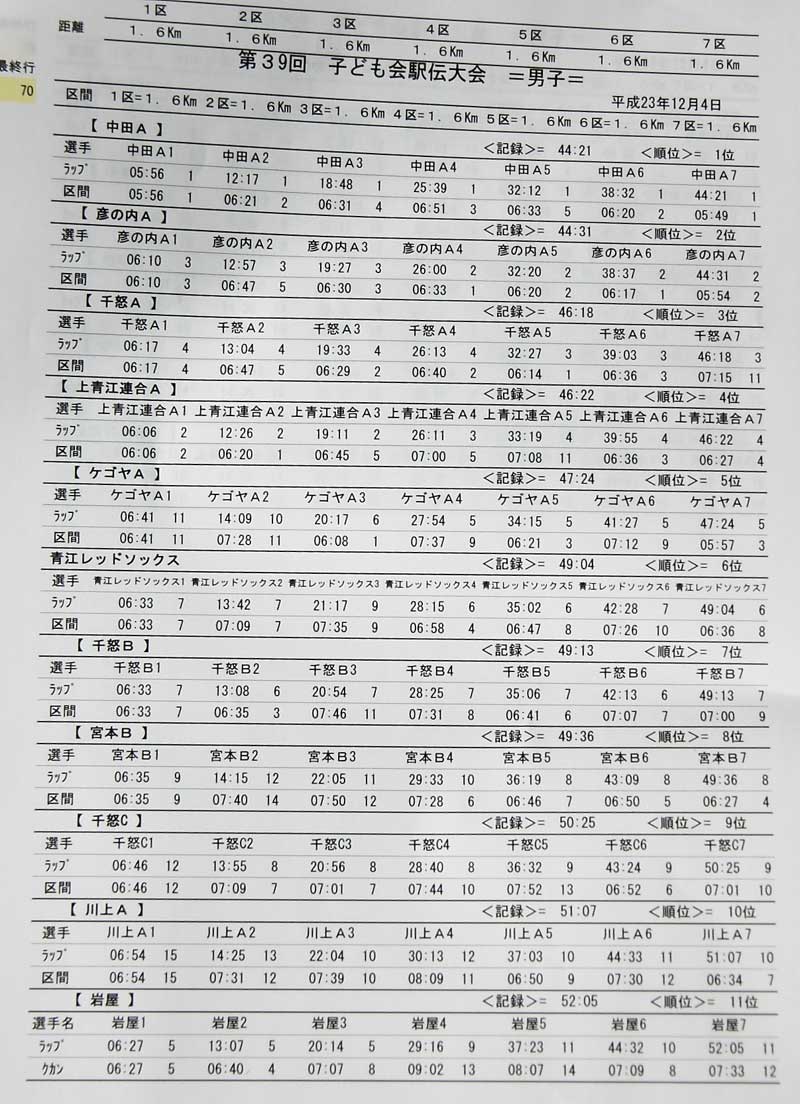 1区 2区 3区 4区 5区 6区 7区
距離 1．6Km 1．6Km 1．6Km 1．6Km 1．6Km 1．6Km 1．6Km
最終行
70
第39回 子ども会駅伝大会 ＝男子＝
平成23年12月4日
区間 1区=1．6Km 2区=1．6Km 3区=1．6Km 4区=1．6Km 5区=1．6Km 6区=1．6Km 7区=1．6Km
【 中田A 】 <記録>= 44:21 <順位>= 1位
選手 中田A1 中田A2 中田A3 中田A4 中田A5 中田A6 中田A7
ﾗｯﾌﾟ 05:56 1 12:17 1 18:48 1 25:39 1 32:12 1 38:32 1 44:21 1
区間 05:56 1 06:21 2 06:31 4 06:51 3 06:33 5 06:20 2 05:49 1
【 彦の内A 】 <記録>= 44:31 <順位>= 2位
選手 彦の内A1 彦の内A2 彦の内A3 彦の内A4 彦の内A5 彦の内A6 彦の内A7
ﾗｯﾌﾟ 06:10 3 12:57 3 19:27 3 26:00 2 32:20 2 38:37 2 44:31 2
区間 06:10 3 06:47 5 06:30 3 06:33 1 06:20 2 06:17 1 05:54 2
【 千怒A 】 <記録>= 46:18 <順位>= 3位
選手 千怒A1 千怒A2 千怒A3 千怒A4 千怒A5 千怒A6 千怒A7
ﾗｯﾌﾟ 06:17 4 13:04 4 19:33 4 26:13 4 32:27 3 39:03 3 46:18 3
区間 06:17 4 06:47 5 06:29 2 06:40 2 06:14 1 06:36 3 07:15 11
【 上青江連合A 】 <記録>= 46:22 <順位>= 4位
選手 上青江連合A1 上青江連合A2 上青江連合A3 上青江連合A4 上青江連合A5 上青江連合A6 上青江連合A7
ﾗｯﾌﾟ 06:06 2 12:26 2 19:11 2 26:11 3 33:19 4 39:55 4 46:22 4
区間 06:06 2 06:20 1 06:45 5 07:00 5 07:08 11 06:36 3 06:27 4
【 ケゴヤA 】 <記録>= 47:24 <順位>= 5位
選手 ケゴヤA1 ケゴヤA2 ケゴヤA3 ケゴヤA4 ケゴヤA5 ケゴヤA6 ケゴヤA7
ﾗｯﾌﾟ 06:41 11 14:09 10 20:17 6 27:54 5 34:15 5 41:27 5 47:24 5
区間 06:41 11 07:28 11 06:08 1 07:37 9 06:21 3 07:12 9 05:57 3
青江レッドソックス <記録>= 49:04 <順位>= 6位
選手 青江レッドソックス1 青江レッドソックス2 青江レッドソックス3 青江レッドソックス4 青江レッドソックス5 青江レッドソックス6 青江レッドソックス7
ﾗｯﾌﾟ 06:33 7 13:42 7 21:17 9 28:15 6 35:02 6 42:28 7 49:04 6
区間 06:33 7 07:09 7 07:35 9 06:58 4 06:47 8 07:26 10 06:36 8
【 千怒B 】 <記録>= 49:13 <順位>= 7位
選手 千怒B1 千怒B2 千怒B3 千怒B4 千怒B5 千怒B6 千怒B7
ﾗｯﾌﾟ 06:33 7 13:08 6 20:54 7 28:25 7 35:06 7 42:13 6 49:13 7
区間 06:33 7 06:35 3 07:46 11 07:31 8 06:41 6 07:07 7 07:00 9
【 宮本B 】 <記録>= 49:36 <順位>= 8位
選手 宮本B1 宮本B2 宮本B3 宮本B4 宮本B5 宮本B6 宮本B7
ﾗｯﾌﾟ 06:35 9 14:15 12 22:05 11 29:33 10 36:19 8 43:09 8 49:36 8
区間 06:35 9 07:40 14 07:50 12 07:28 6 06:46 7 06:50 5 06:27 4
【 千怒C 】 <記録>= 50:25 <順位>= 9位
選手 千怒C1 千怒C2 千怒C3 千怒C4 千怒C5 千怒C6 千怒C7
ﾗｯﾌﾟ 06:46 12 13:55 8 20:56 8 28:40 8 36:32 9 43:24 9 50:25 9
区間 06:46 12 07:09 7 07:01 7 07:44 10 07:52 13 06:52 6 07:01 10
【 川上A 】 <記録>= 51:07 <順位>= 10位
選手 川上A1 川上A2 川上A3 川上A4 川上A5 川上A6 川上A7
ﾗｯﾌﾟ 06:54 15 14:25 13 22:04 10 30:13 12 37:03 10 44:33 11 51:07 10
区間 06:54 15 07:31 12 07:39 10 08:09 11 06:50 9 07:30 12 06:34 7
【 岩屋 】 <記録>= 52:05 <順位>= 11位
選手名 岩屋1 岩屋2 岩屋3 岩屋4 岩屋5 岩屋6 岩屋7
ﾗｯﾌﾟ 06:27 5 13:07 5 20:14 5 29:16 9 37:23 11 44:32 10 52:05 11
ｸｶﾝ 06:27 5 06:40 4 07:07 8 09:02 13 08:07 14 07:09 8 07:33 12